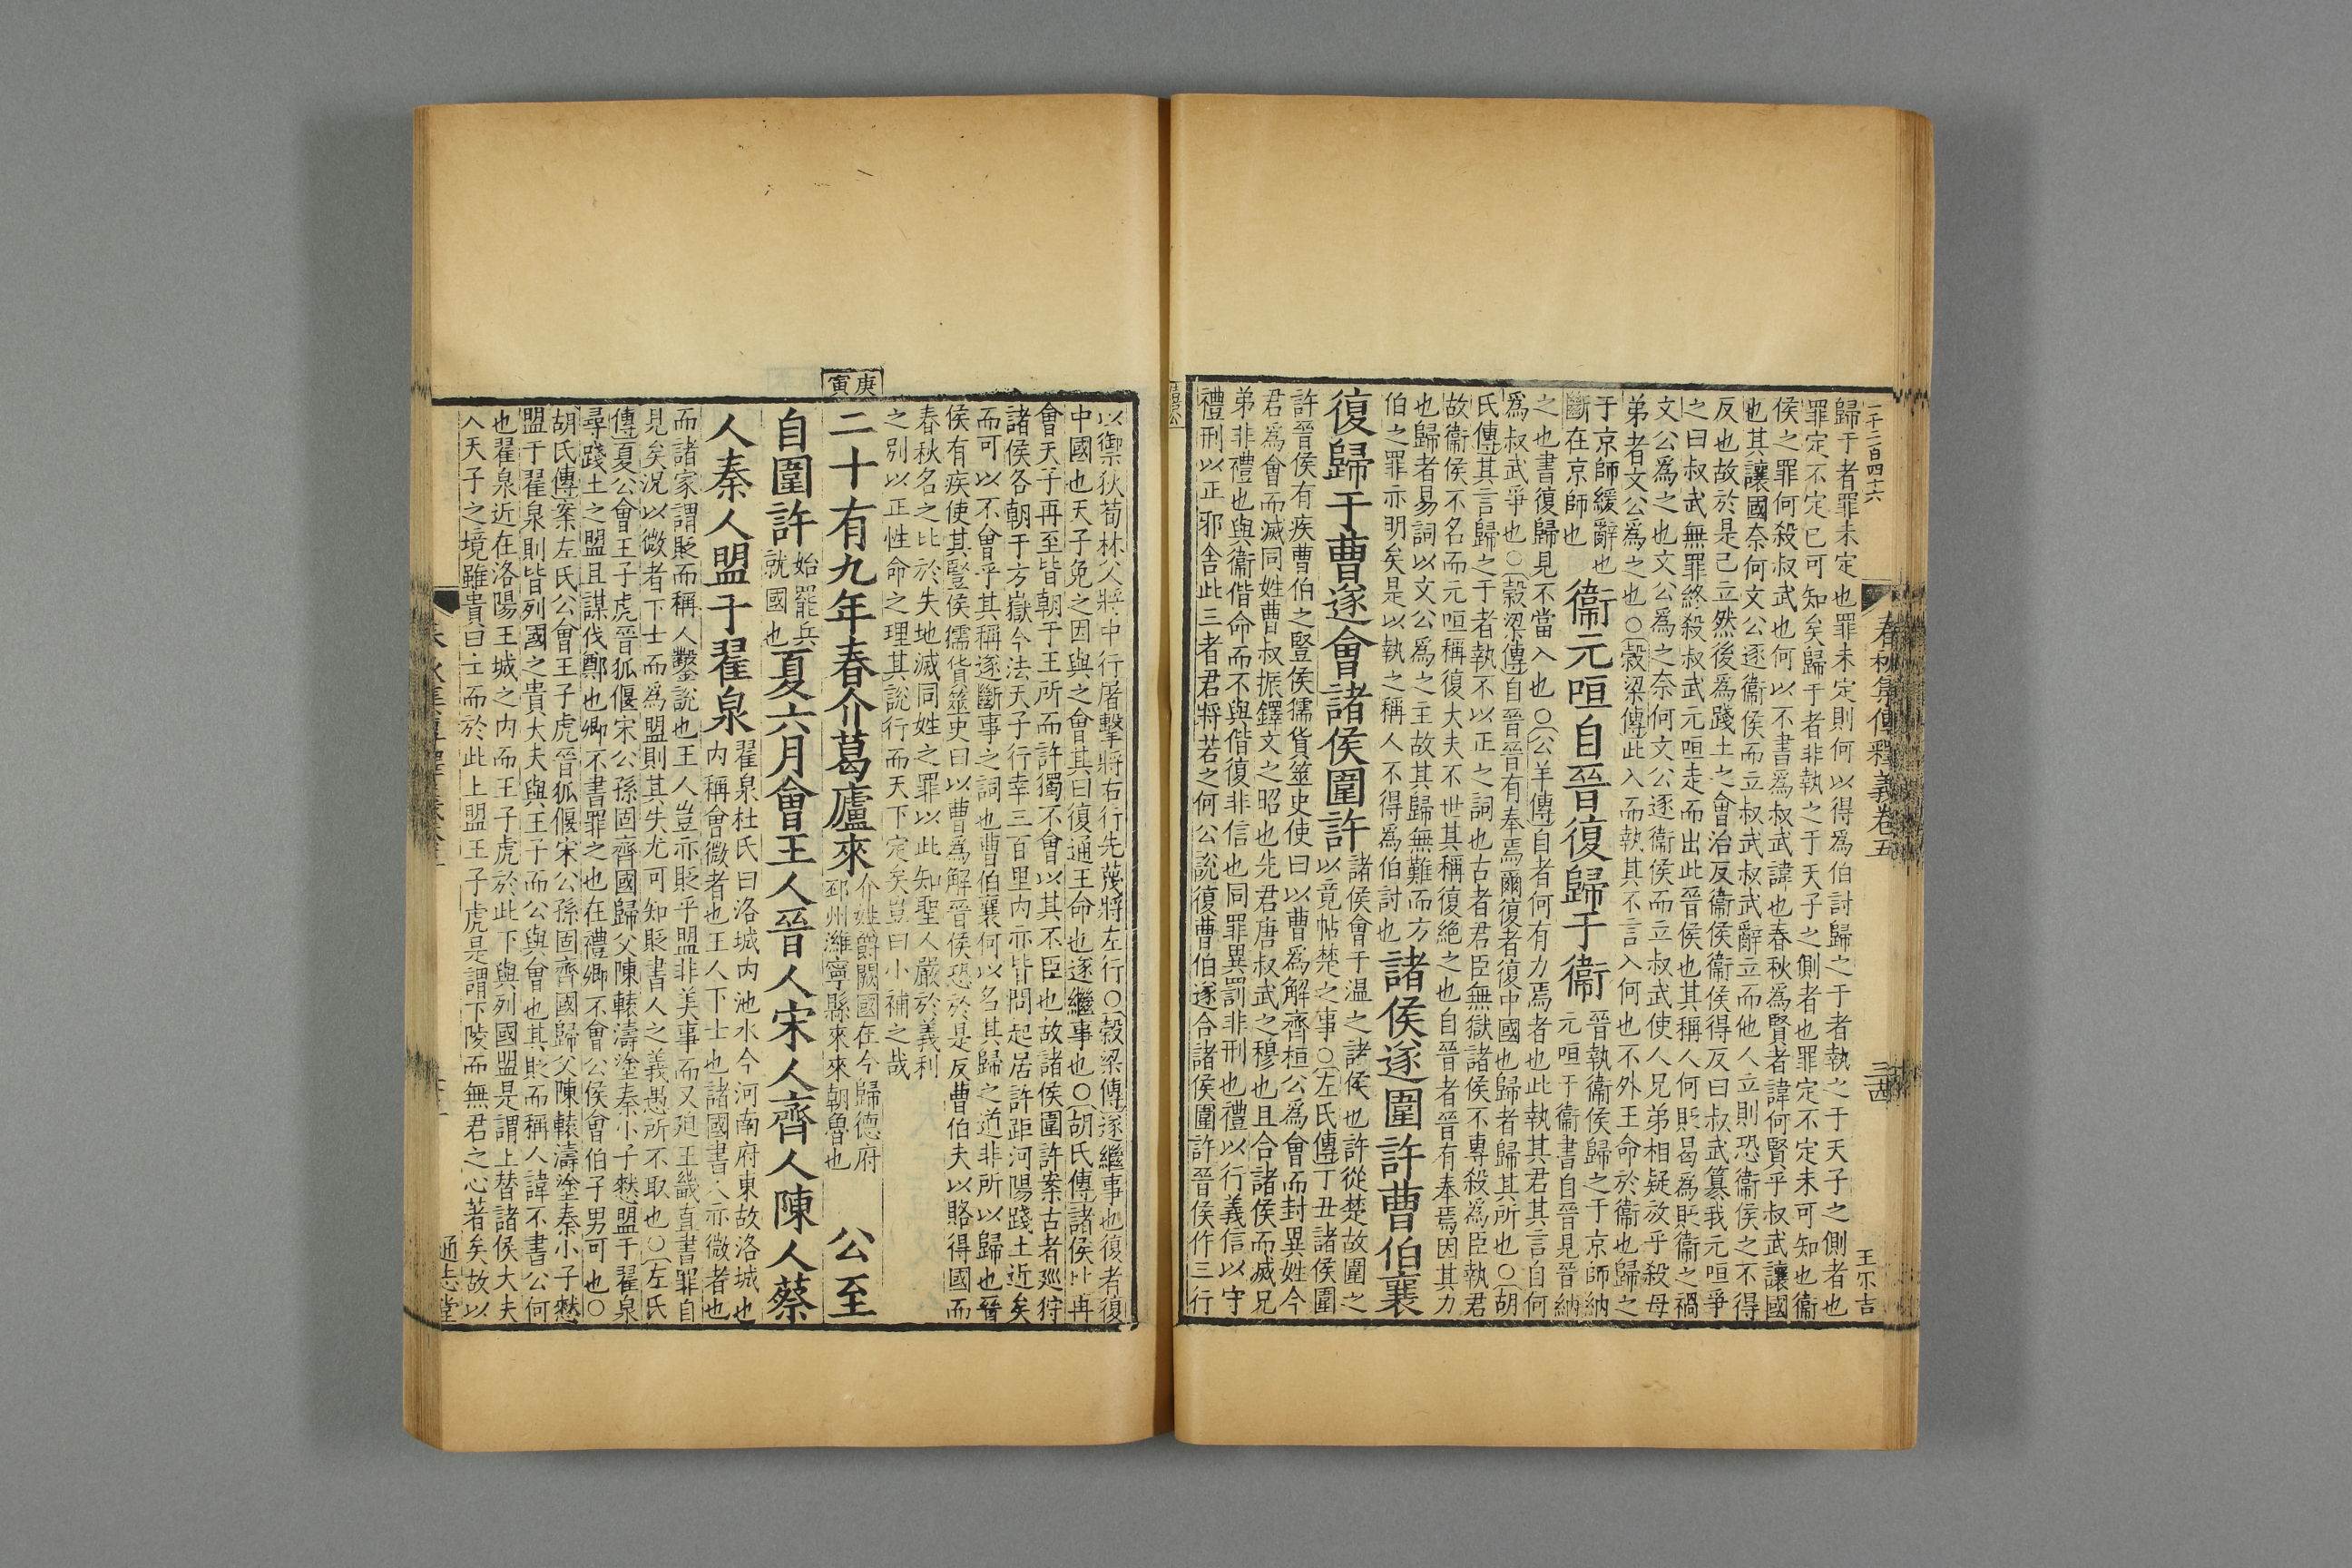 一千二百四十六
春秋集傳釋義卷五
三十四
王不吉
歸于者罪未定也罪未定則何以得爲伯討歸之于者執之于天子之側者也
罪定不定已可知矣歸于者非執之于天子之側者也罪定不定未可知也衞
侯之罪何殺叔武也何以不書爲叔武諱也春秋爲賢者諱何賢乎叔武讓國
也其讓國奈何文公逐衞侯而立叔武叔武辭立而他人立則恐衞侯之不得
反也故於是己立然後爲踐土之會治反衞侯衞侯得反曰叔武篡我元咺爭
之曰叔武無罪終殺叔武元咺走而出此晉侯也其稱人何貶曷爲貶衞之禍
文公爲之也文公爲之奈何文公逐衞侯而立叔武使人兄弟相疑放乎殺母
弟者文公爲之也○穀梁傳此入而執其不言入何也不外王命於衞也歸之
于京師緩辭也
斷在京師也
衞元咺自晉復歸于衞
晉執衞侯歸之于京師納
元咺于衞書自晉見晉納
之也書復歸見不當入也○公羊傳自者何有力焉者也此執其君其言自何
爲叔武爭也○穀梁傳自晉晉有奉焉爾復者復中國也歸者歸其所也○胡
氏傳其言歸之于者執不以正之詞也古者君臣無獄諸侯不專殺爲臣執君
故衞侯不名而元咺稱復大夫不世其稱復絶之也自晉者晉有奉焉因其力
也歸者易詞以文公爲之主故其歸無難而方
伯之罪亦明矣是以執之稱人不得爲伯討也
諸侯遂圍許曹伯襄
復歸于曹遂會諸侯圍許
諸侯會于温之諸侯也許從楚故圍之
以竟帖楚之事○左氏傳丁丑諸侯圍
許晉侯有疾曹伯之豎侯獳貨筮史使曰以曹爲解齊桓公爲會而封異姓今
君爲會而滅同姓曹叔振鐸文之昭也先君唐叔武之穆也且合諸侯而滅兄
弟非禮也與衞偕命而不與偕復非信也同罪異罰非刑也禮以行義信以守
禮刑以正邪舍此三者君將若之何公說復曹伯遂合諸侯圍許晉侯作三行
以禦狄荀林父將中行屠擊將右行先蔑將左行○穀梁傳遂繼事也復者復
中國也天子免之因與之會其曰復通王命也遂繼事也○胡氏傳諸侯比再
會天子再至皆朝于王所而許獨不會以其不臣也故諸侯圍許案古者廵狩
諸侯各朝于方嶽今法天子行幸三百里内亦皆問起居許距河陽踐土近矣
而可以不會乎其稱遂斷事之詞也曹伯襄何以名其歸之道非所以歸也晉
侯有疾使其豎侯獳貨筮史曰以曹爲解晉侯恐於是反曹伯夫以賂得國而
春秋名之比於失地滅同姓之罪以此知聖人嚴於義利
之别以正性命之理其說行而天下定矣豈曰小補之哉
庚寅
二十有九年春介葛廬來
介姓爵闕國在今歸德府
邳州濰寧縣來來朝魯也
公至
自圍許
始罷兵
就國也
夏六月會王人晉人宋人齊人陳人蔡
人秦人盟于翟泉
翟泉杜氏曰洛城内池水今河南府東故洛城也
内稱會微者也王人下士也諸國書人亦微者也
而諸家謂貶而稱人鑿說也王人豈亦貶乎盟非美事而又廹王畿直書罪自
見矣況以微者下士而爲盟則其失尤可知貶書人之義愚所不取也○左氏
傳夏公會王子虎晉狐偃宋公孫固齊國歸父陳轅濤塗秦小子憖盟于翟泉
尋踐土之盟且謀伐鄭也卿不書罪之也在禮卿不會公侯會伯子男可也○
胡氏傳案左氏公會王子虎晉狐偃宋公孫固齊國歸父陳轅濤塗秦小子憖
盟于翟泉則皆列國之貴大夫與王子而公與會也其貶而稱人諱不書公何
也翟泉近在洛陽王城之内而王子虎於此下與列國盟是謂上替諸侯大夫
入天子之境雖貴曰士而於此上盟王子虎是謂下陵而無君之心著矣故以
通志堂